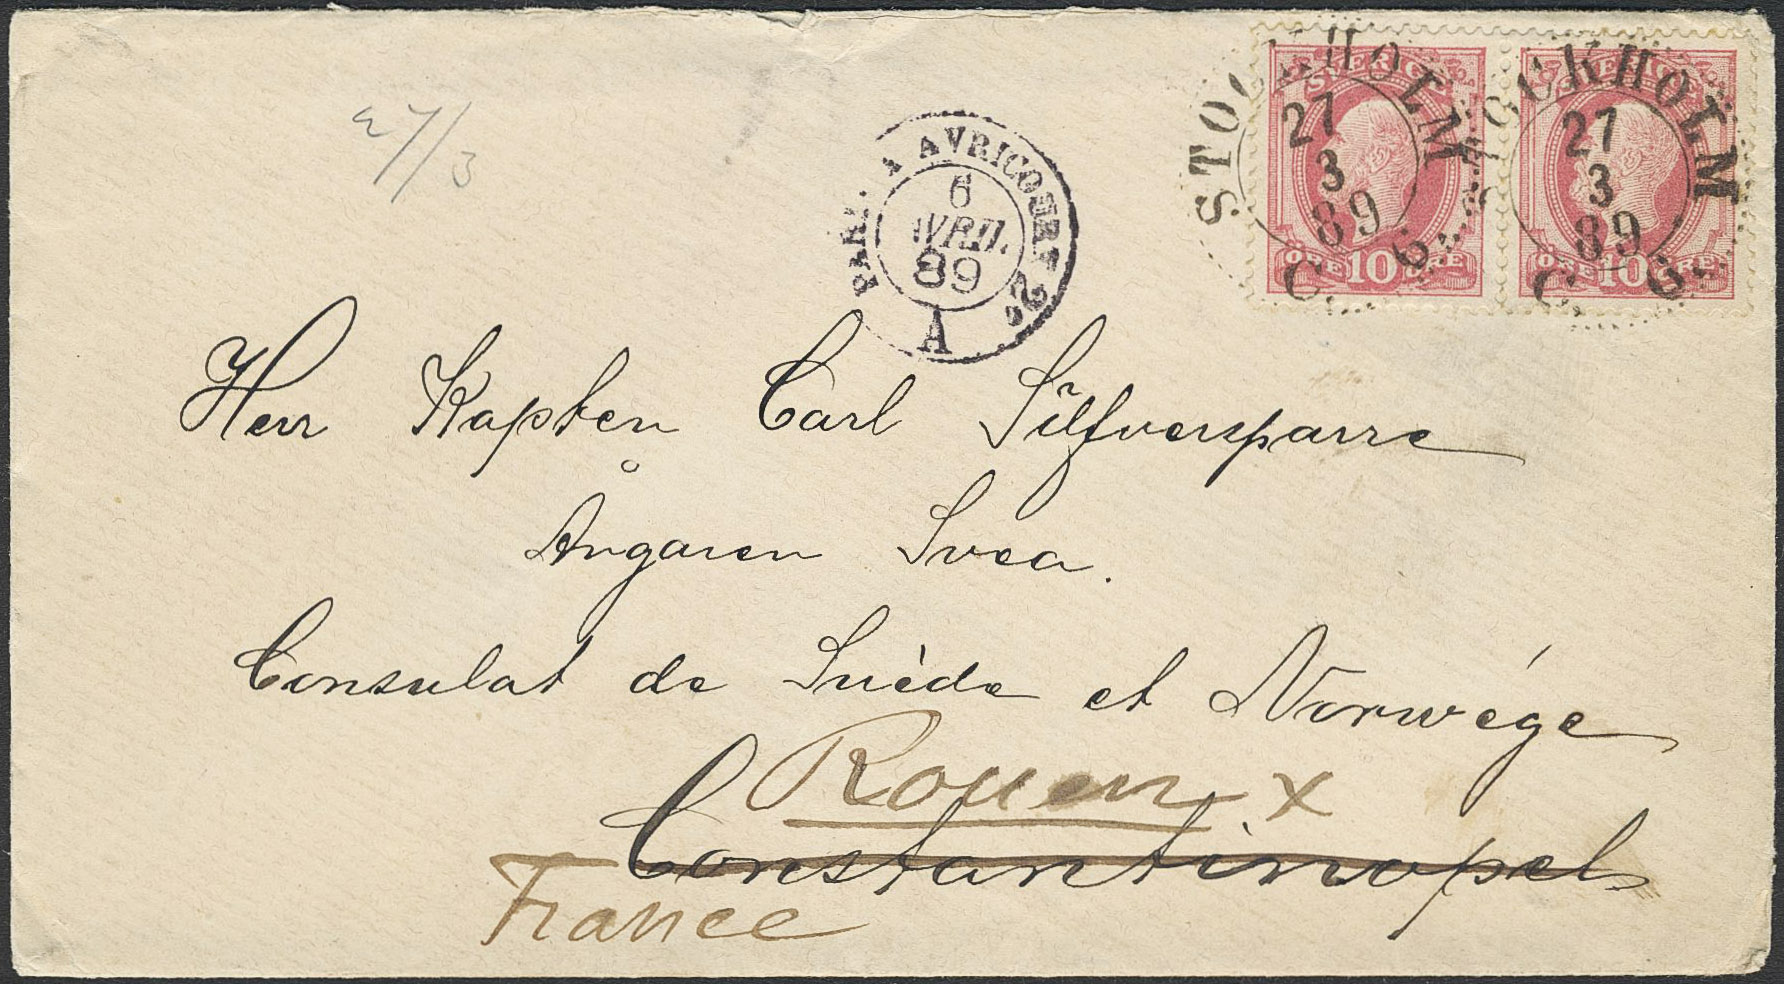 27/3
STOCKHOLM
27
3
89
C. 6.
SVERIGE
ÖRE 10 ÖRE
STOCKHOLM
27
3
89
C. 6.
SVERIGE
ÖRE 10 ÖRE
PARI. A AVRICOURT 2°
6
AVRIL
89
A
Herr Kapten Carl Silfversparre
Ångaren Svea.
Consulat de Suède et Norwége
Rouen x
Constantinopel
France